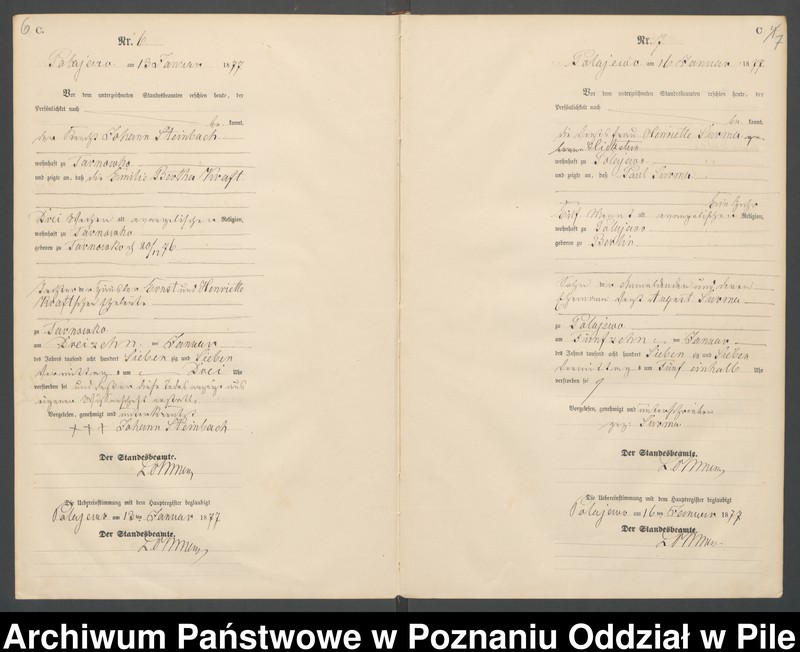 6 C.
Nr. 6
Polajewo am 13 Januar 1877
Vor dem unterzeichneten Standesbeamten erschien heute, der
Persönlichkeit nach
be kannt,
der Knecht Johann Steinbach
wohnhaft zu Tarnowko
und zeigte an, daß die Emilie Bertha Kraft
Drei Wochen alt evangelischer Religion,
wohnhaft zu Tarnowko
geboren zu Tarnowko
Tochter der Häusler Ernst und Henriette
Kraftschen Eheleute
zu Tarnowko
am Dreizehn ten Januar
des Jahres tausend acht hundert Sieben zig und Sieben
Vormittag s um Drei Uhr
verstorben sei und daß er diese Todesanzeige aus
eigener Wissenschaft erstatte.
Vorgelesen, genehmigt und unterkreuzt
+++ Johann Steinbach
Der Standesbeamte.
Die Uebereinstimmung mit dem Hauptregister beglaubigt
Polajewo am 13ten Januar 1877
Der Standesbeamte.
C 7
Nr. 7
Polajewo am 16 Januar 1877
Vor dem unterzeichneten Standesbeamten erschien heute, der
Persönlichkeit nach
be kannt,
die Henriette
wohnhaft zu Polajewo
und zeigte an, daß Paul
Ein Jahr
Elf Monat alt evangelischer Religion,
wohnhaft zu Polajewo
geboren zu Berlin
Sohn der Anmeldenden und deren
Ehemann August
zu Polajewo
am Fünfzehn ten Januar
des Jahres tausend acht hundert Sieben zig und Sieben
Vormittag s um Fünf einhalb Uhr
verstorben sei
Vorgelesen, genehmigt und unterschrieben
gez.
Der Standesbeamte.
Die Uebereinstimmung mit dem Hauptregister beglaubigt
Polajewo am 16ten Januar 1877
Der Standesbeamte.
Archiwum Państwowe w Poznaniu Oddział w Pile